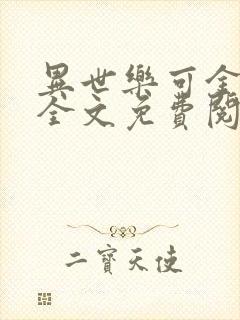 異世樂可全
全文免費閱
二寶天使